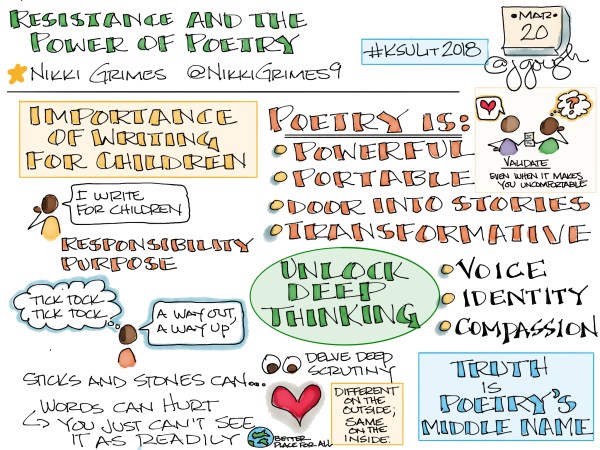 RESISTANCE AND THE
POWER OF POETRY
NIKKI GRIMES @NIKKIGRIMES9
#KSULIT2018
MAR
20
@jgough
IMPORTANCE
OF WRITING
FOR CHILDREN
I WRITE
FOR CHILDREN
RESPONSIBILITY
PURPOSE
TICK TOCK
TICK TOCK
A WAY OUT,
A WAY UP
STICKS AND STONES CAN...
WORDS CAN HURT
YOU JUST CAN'T SEE
IT AS READILY
POETRY IS:
POWERFUL
PORTABLE
DOOR INTO STORIES
TRANSFORMATIVE
?
VALIDATE
EVEN WHEN IT MAKES
YOU UNCOMFORTABLE
UNLOCK
DEEP
THINKING
VOICE
IDENTITY
COMPASSION
DELVE DEEP
SCRUTINY
DIFFERENT
ON THE
OUTSIDE,
SAME
ON THE
INSIDE.
BETTER
PLACE FOR ALL
TRUTH
IS
POETRY'S
MIDDLE NAME